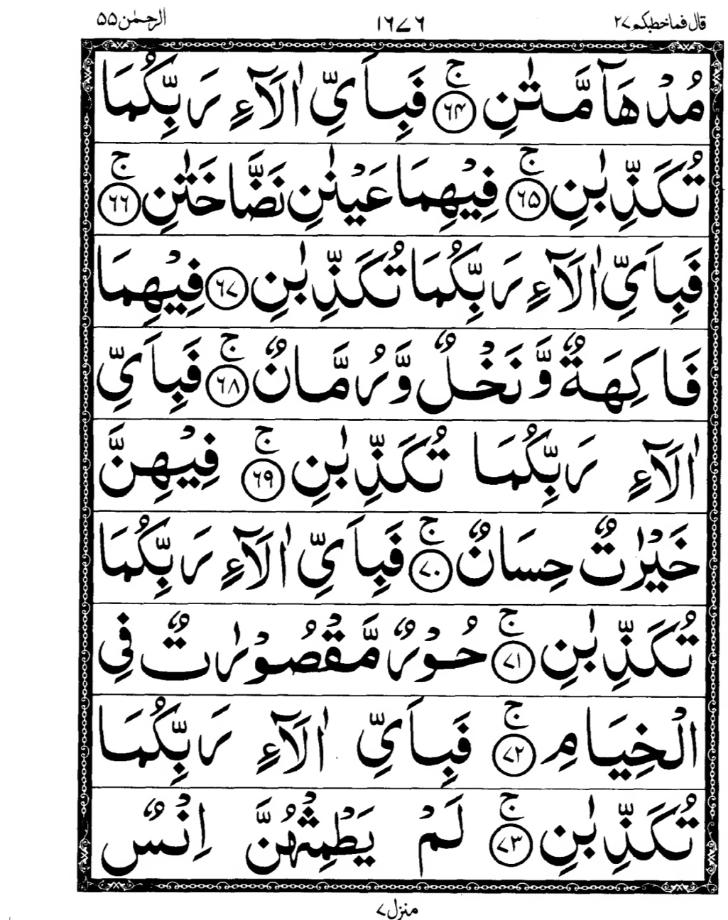 قال فماخطبكم ٢٧ ١٦٧٦ الرحمٰن ۵۵
مُدْهَآمَّتٰنِ ۚ‏﴿۶۴﴾ فَبِاَىِّ اٰلَآءِ رَبِّكُمَا
تُكَذِّبٰنِ ۚ‏﴿۶۵﴾ فِيْهِمَا عَيْنٰنِ نَضَّاخَتٰنِ ۚ‏﴿۶۶﴾
فَبِاَىِّ اٰلَآءِ رَبِّكُمَا تُكَذِّبٰنِ ﴿۶۷﴾ فِيْهِمَا
فَاكِهَةٌ وَّنَخْلٌ وَّرُمَّانٌ ۚ‏﴿۶۸﴾ فَبِاَىِّ
اٰلَآءِ رَبِّكُمَا تُكَذِّبٰنِ ۚ‏﴿۶۹﴾ فِيْهِنَّ
خَيْرٰتٌ حِسَانٌ ۚ‏﴿۷۰﴾ فَبِاَىِّ اٰلَآءِ رَبِّكُمَا
تُكَذِّبٰنِ ۚ‏﴿۷۱﴾ حُوْرٌ مَّقْصُوْرٰتٌ فِى
الْخِيَامِ ۚ‏﴿۷۲﴾ فَبِاَىِّ اٰلَآءِ رَبِّكُمَا
تُكَذِّبٰنِ ۚ‏﴿۷۳﴾ لَمْ يَطْمِثْهُنَّ اِنْسٌ
منزل ۷